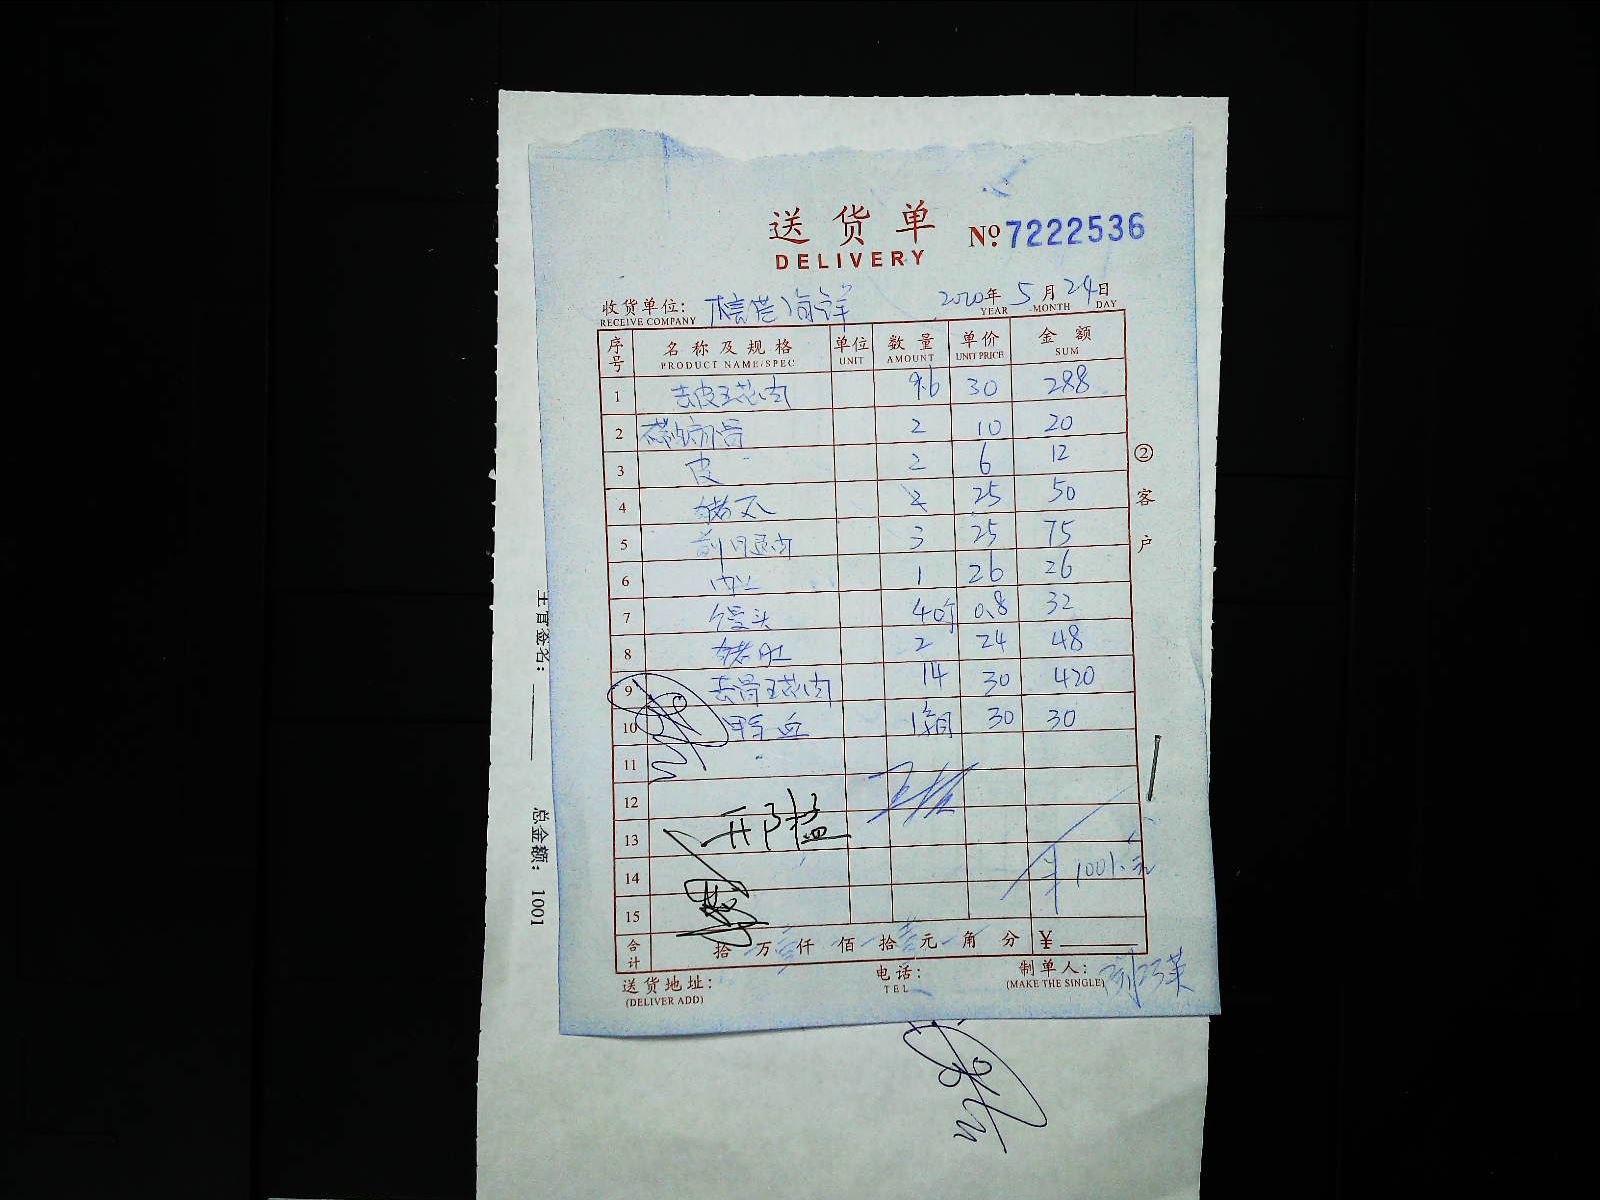 送货单 №7222536
DELIVERY
收货单位: 海洋 2020年 5月 24日
RECEIVE COMPANY YEAR MONTH DAY
序号 名称及规格 单位 数量 单价 金额
PRODUCT NAME/SPEC UNIT AMOUNT UNIT PRICE SUM
1 去皮五花肉 9.6 30 288
2 2 10 20
3 皮 2 6 12
4 2 25 50
5 前腿肉 3 25 75
6 1 26 26
7 馒头 40个 0.8 32
8 猪肚 2 24 48
9 去骨五花肉 14 30 420
10 血 1 30 30
11
12
13
14 ¥1001.元
15
合计 拾 万 壹仟 佰 拾 壹元 角 分 ¥
送货地址: 电话: 制单人:
(DELIVER ADD) TEL (MAKE THE SINGLE)
②客户
主官签名: 总金额: 1001